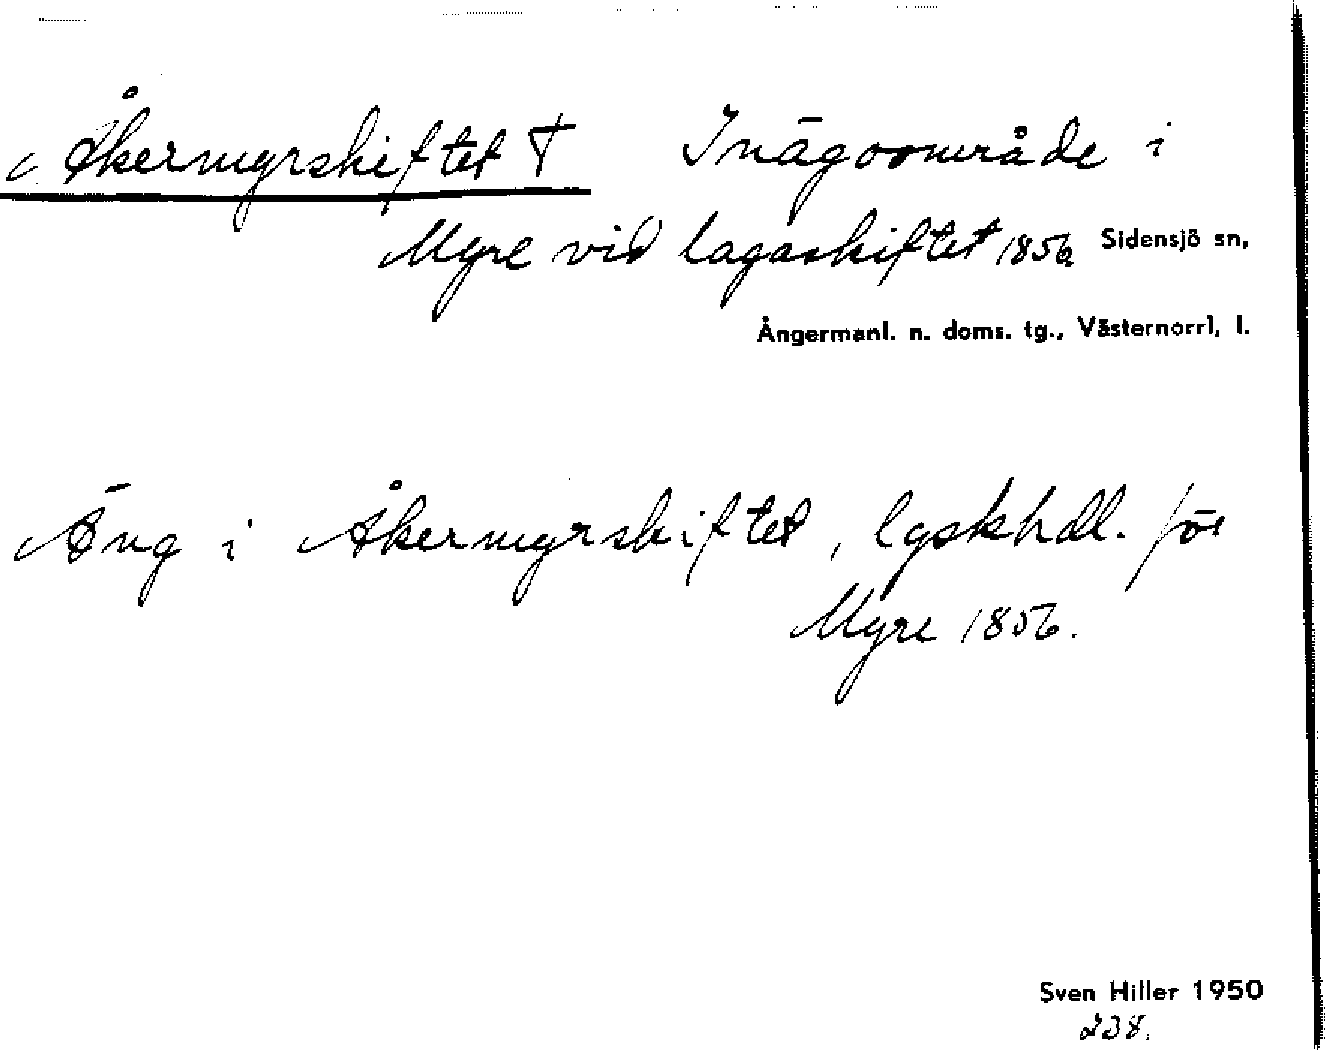 Åkermyrskiftet † Inägoområde i
Myre vid lagaskiftet 1856 Sidensjö sn,
Ångermanl. n. doms. tg., Västernorrl. l.
Äng i Åkermyrskiftet, lgskhdl. för
Myre 1856.
Sven Hiller 1950
238.